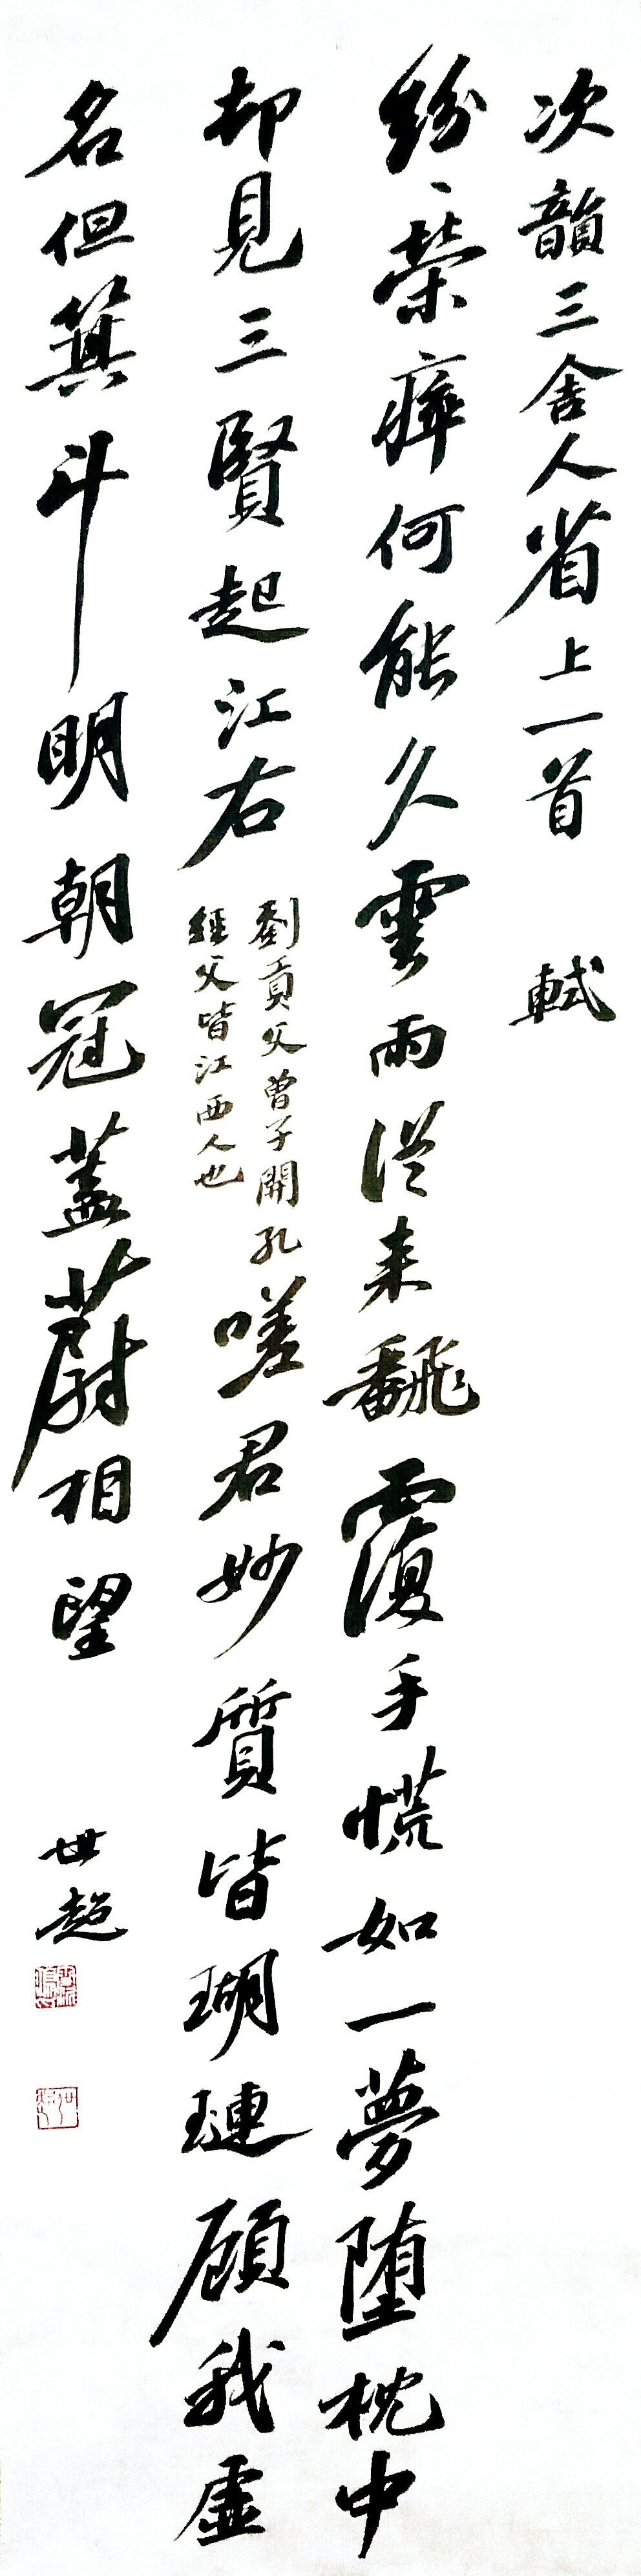 次韻三舍人省上一首 軾
紛、榮瘁何能久雲雨從来翻覆手慌如一夢堕枕中
却見三賢起江右
劉貢父曾子開孔
經父皆江西人也
嗟君妙質皆瑚璉顧我虛
名但箕斗明朝冠蓋蔚相望
世超